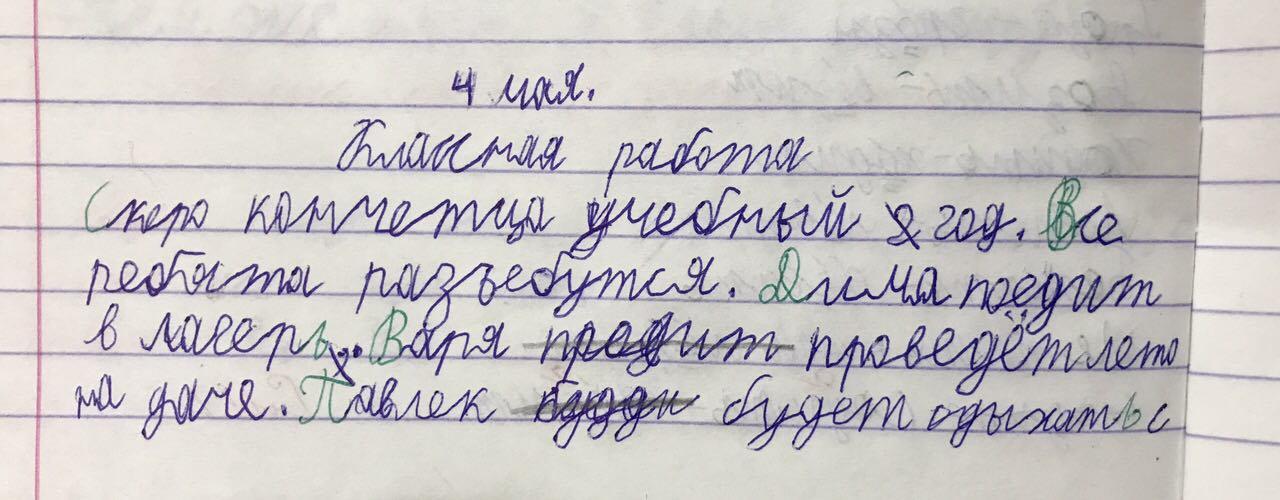 4 мая.
Классная работа
Скоро кончетца учебный год. Все
ребята разъебутся. Дима поедит
в лагерь. Варя проведёт лето
на даче. Павлек будет одыхать с